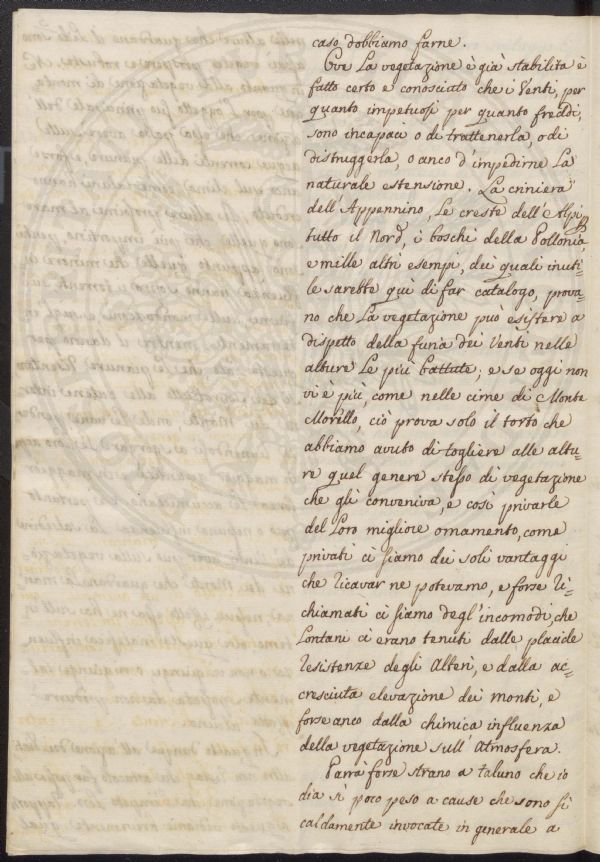 caso, dobbiamo farne.
Ove La vegetazione è già stabilita è
fatto certo e conosciuto che i Venti, per
quanto impetuosi per quanto freddi,
sono incapaci o di trattenerla, o di
distruggerla, o anco d'impedirne La
naturale estensione. La criniera
dell'Appennino, Le creste dell'Alpi,
tutto il Nord, i boschi della Pollonia,
e mille altri esempi, dei quali inuti=
le sarebbe quì di far catalogo, prova=
no che La vegetazione può esistere a
dispetto della furia dei Venti nelle
alture Le più battute; e se oggi non
vi è più, come nelle cime di Monte
Morello, ciò prova solo il torto che
abbiamo avuto di togliere alle altu=
re quel genere stesso di vegetazione
che gli conveniva, e così privarle
del Loro migliore ornamento, come
privati ci siamo dei soli vantaggi
che ricavar ne potevamo, e forse ri=
chiamati ci siamo degl'incomodi, che
Lontani ci erano tenuti dalle placide
resistenze degli Alberi, e dalla ac=
cresciuta elevazione dei monti, e
forse anco dalla chimica influenza
della vegetazione sull'Atmosfera.
Parrà forse strano a taluno che io
dia sì poco peso a cause che sono sì
caldamente invocate in generale a